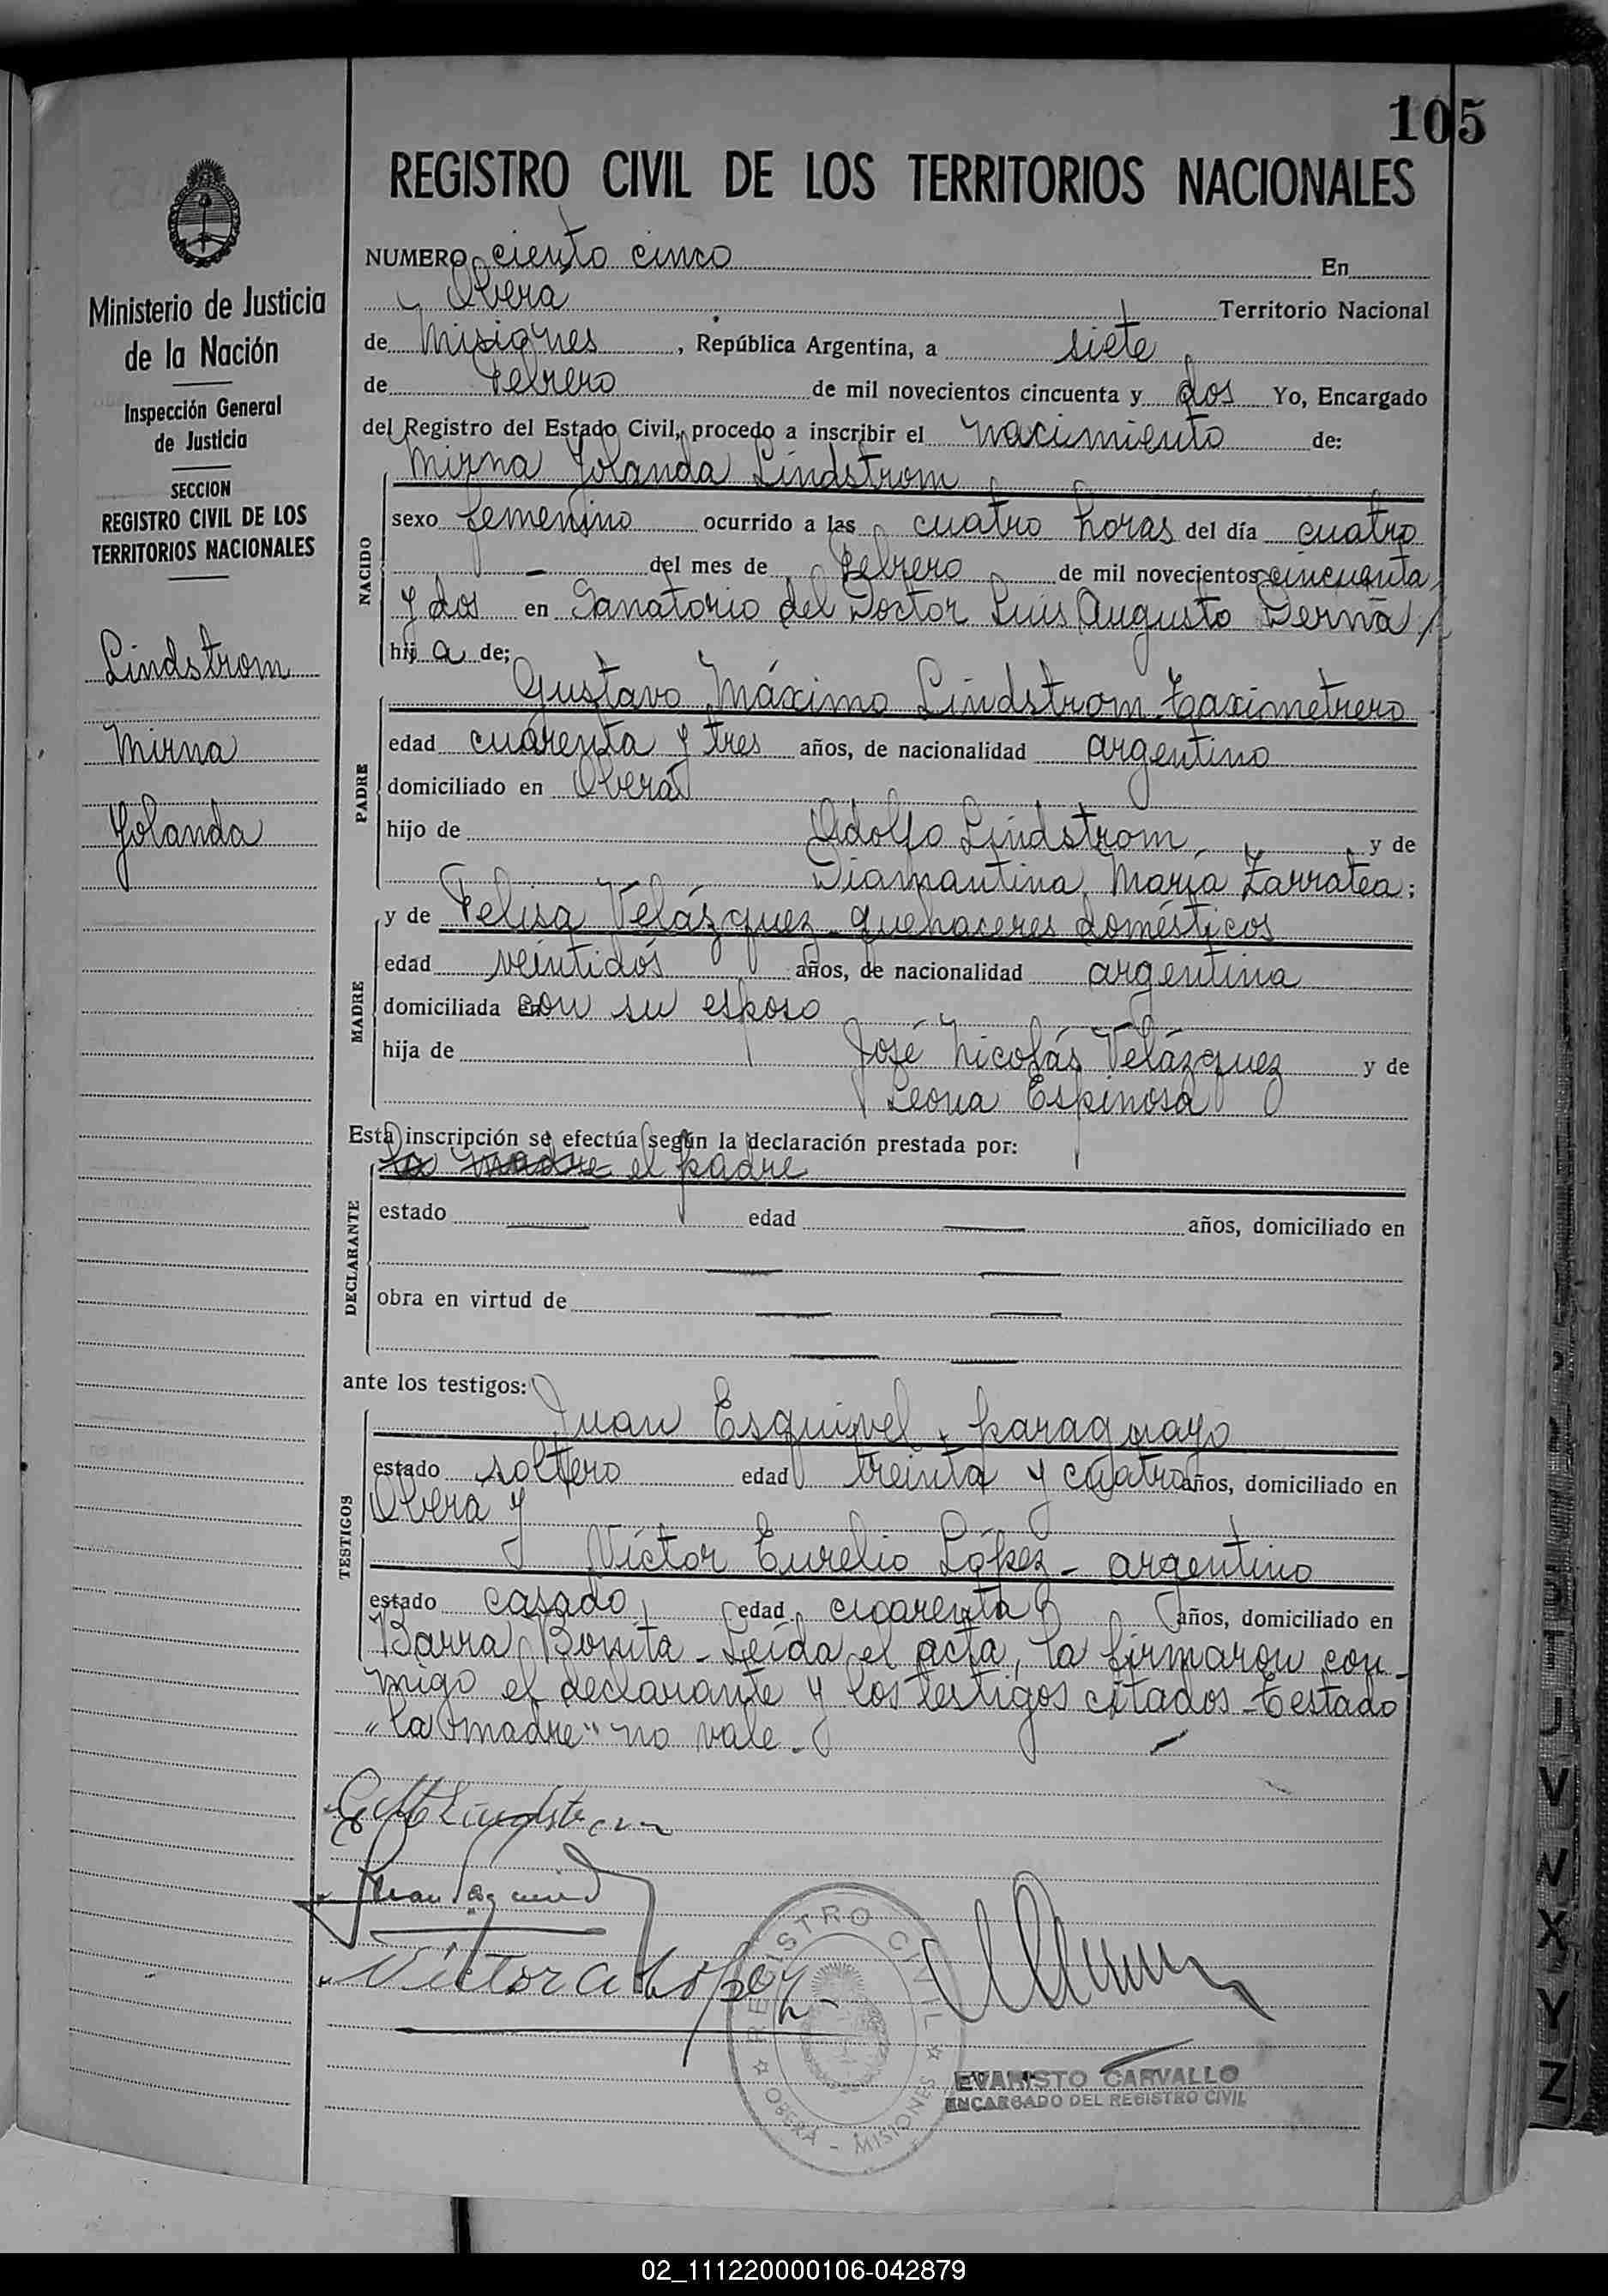 105
REGISTRO CIVIL DE LOS TERRITORIOS NACIONALES
Ministerio de Justicia
de la Nación
Inspección General
de Justicia
SECCION
REGISTRO CIVIL DE LOS
TERRITORIOS NACIONALES
Lindstrom
Mirna
Yolanda
NUMERO ciento cinco En
Oberá Territorio Nacional
de Misiones, República Argentina, a siete
de Febrero de mil novecientos cincuenta y dos Yo, Encargado
del Registro del Estado Civil, procedo a inscribir el nacimiento de:
Mirna Yolanda Lindstrom
NACIDO
sexo femenino ocurrido a las cuatro horas del día cuatro
— del mes de Febrero de mil novecientos cincuenta
y dos en Sanatorio del Doctor Luis Augusto Derna /
hij a de;
Gustavo Máximo Lindstrom - taximetrero
PADRE
edad cuarenta y tres años, de nacionalidad argentino
domiciliado en Oberá
hijo de Adolfo Lindstrom y de
Diamantina María Zarratea;
y de Felisa Velázquez - quehaceres domésticos
MADRE
edad veintidós años, de nacionalidad argentina
domiciliada en con su esposo
hija de José Nicolás Velázquez y de
Leona Espinosa
Esta inscripción se efectúa según la declaración prestada por:
la madre el padre
DECLARANTE
estado — edad — años, domiciliado en
— —
obra en virtud de — —
— —
ante los testigos:
Juan Esquivel - paraguayo
TESTIGOS
estado soltero edad treinta y cuatro años, domiciliado en
Oberá y
Víctor Eurelio López - argentino
estado casado edad cuarenta años, domiciliado en
Barra Bonita - Leída el acta, la firmaron con-
migo el declarante y los testigos citados - Testado
"la madre" no vale -
G M Lindstrom
Juan Esquivel
Victor A López -
REGISTRO CIVIL
OBERÁ - MISIONES
EVARISTO CARVALLO
ENCARGADO DEL REGISTRO CIVIL
J
V
W
X
Y
Z
02_111220000106-042879